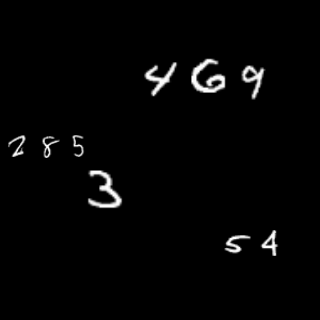 469
285
3
54